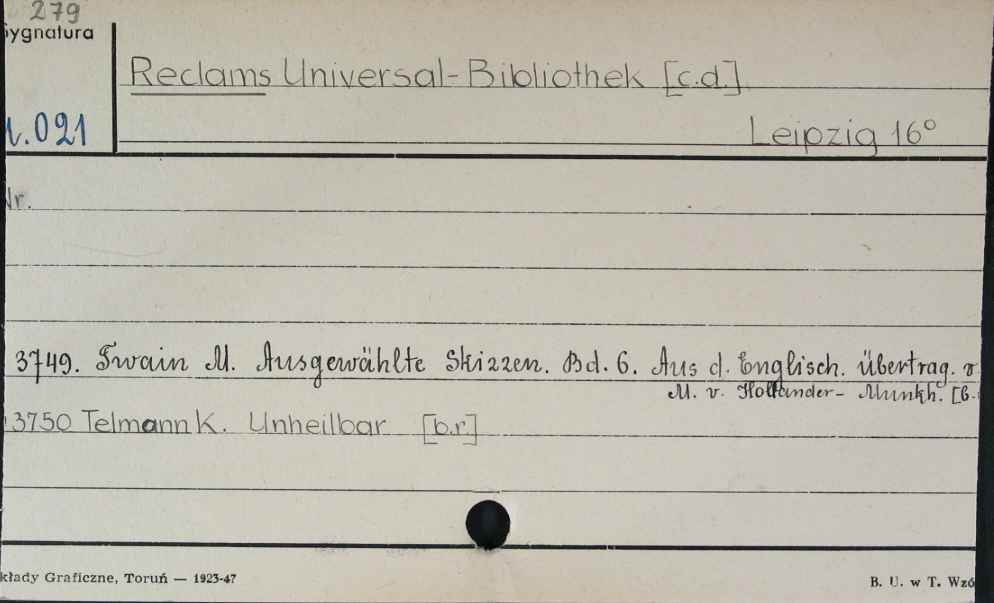 279
Sygnatura
Reclams Universal-Bibliothek [c.d.]
.021
Leipzig 16°
Nr.
3749. Twain M. Ausgewählte Skizzen. Bd. 6. Aus d. Englisch. übertrag. v.
M. v. Hollander- Munkh. [b.
3750 Telmann K. Unheilbar [b.r.]
kłady Graficzne, Toruń — 1923-47
B. U. w T. Wzó